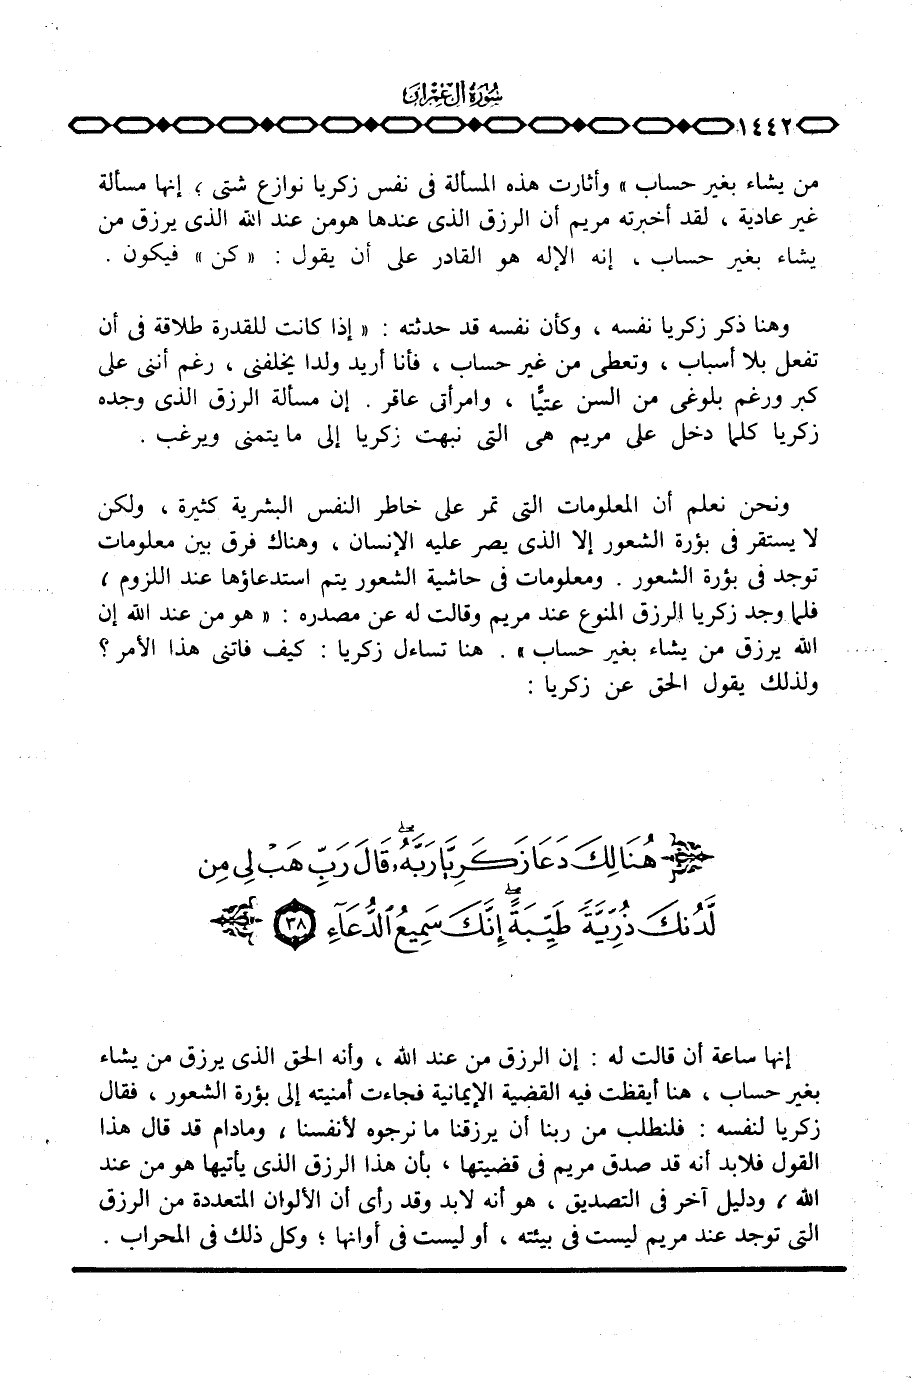 سُورَةُ آلِ عِمْرَان
١٤٤٢
من يشاء بغير حساب » وأثارت هذه المسألة فى نفس زكريا نوازع شتى ؛ إنها مسألة
غير عادية ، لقد أخبرته مريم أن الرزق الذى عندها هومن عند الله الذى يرزق من
يشاء بغير حساب ، إنه الإله هو القادر على أن يقول : « كن » فيكون .
وهنا ذكر زكريا نفسه ، وكأن نفسه قد حدثته : « إذا كانت للقدرة طلاقة فى أن
تفعل بلا أسباب ، وتعطى من غير حساب ، فأنا أريد ولدا يخلفنى ، رغم أننى على
كبر ورغم بلوغى من السن عتيًّا ، وامرأتى عاقر . إن مسألة الرزق الذى وجده
زكريا كلما دخل على مريم هى التى نبهت زكريا إلى ما يتمنى ويرغب .
ونحن نعلم أن المعلومات التى تمر على خاطر النفس البشرية كثيرة ، ولكن
لا يستقر فى بؤرة الشعور إلا الذى يصر عليه الإنسان ، وهناك فرق بين معلومات
توجد فى بؤرة الشعور . ومعلومات فى حاشية الشعور يتم استدعاؤها عند اللزوم ،
فلما وجد زكريا الرزق المنوع عند مريم وقالت له عن مصدره : « هو من عند الله إن
الله يرزق من يشاء بغير حساب » . هنا تساءل زكريا : كيف فاتنى هذا الأمر ؟
ولذلك يقول الحق عن زكريا :
هُنَالِكَ دَعَا زَكَرِيَّا رَبَّهُۥۖ قَالَ رَبِّ هَبْ لِى مِن
لَّدُنكَ ذُرِّيَّةً طَيِّبَةًۖ إِنَّكَ سَمِيعُ ٱلدُّعَآءِ ٣٨
إنها ساعة أن قالت له : إن الرزق من عند الله ، وأنه الحق الذى يرزق من يشاء
بغير حساب ، هنا أيقظت فيه القضية الإيمانية فجاءت أمنيته إلى بؤرة الشعور ، فقال
زكريا لنفسه : فلنطلب من ربنا أن يرزقنا ما نرجوه لأنفسنا ، ومادام قد قال هذا
القول فلابد أنه قد صدق مريم فى قضيتها ، بأن هذا الرزق الذى يأتيها هو من عند
الله ، ودليل آخر فى التصديق ، هو أنه لابد وقد رأى أن الألوان المتعددة من الرزق
التى توجد عند مريم ليست فى بيئته ، أو ليست فى أوانها ؛ وكل ذلك فى المحراب .